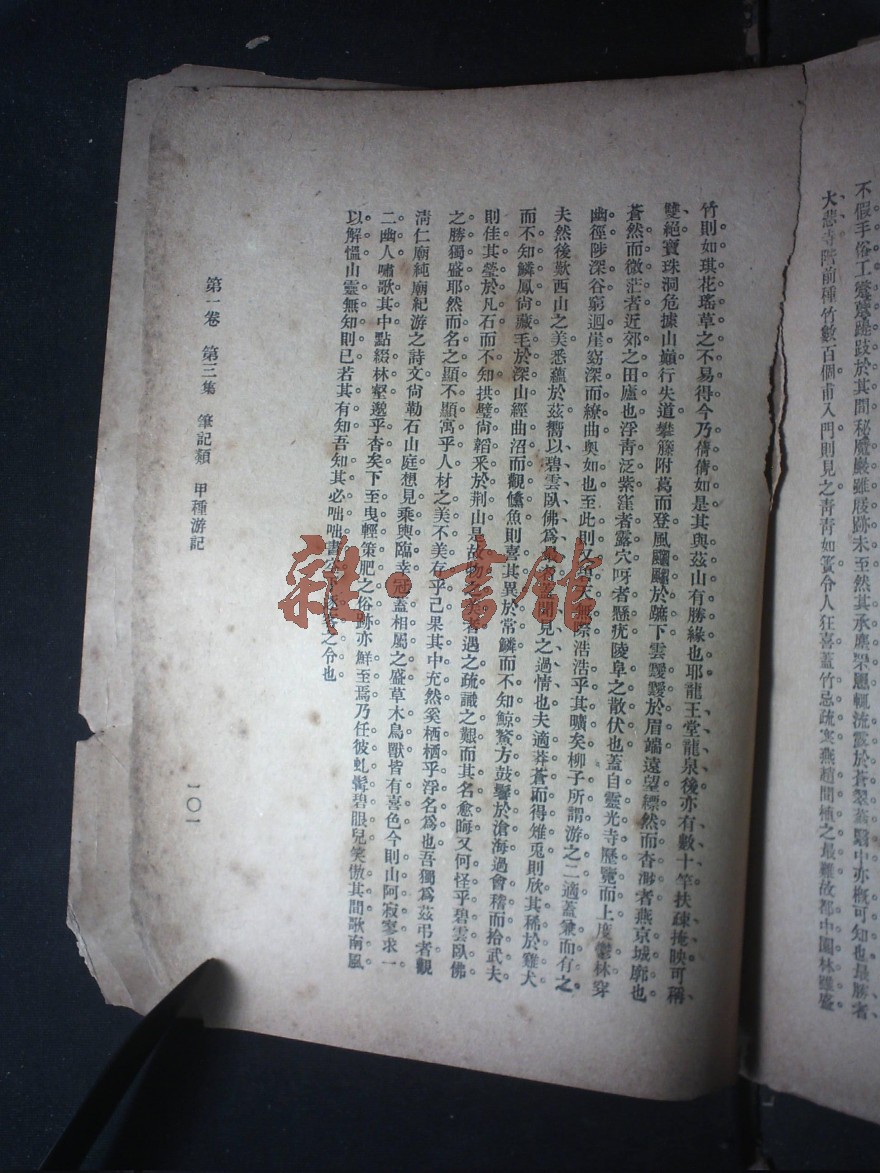 不假手俗工蹇躄跂於其間秘魔巖雖屐跡未至然其承塵罘罳輒流靈於蒼翠蓊翳中亦概可知也最勝者
大悲寺階前種竹數百個甫入門則見之青青如簀令人狂喜蓋竹忌疏寒燕趙間植之最難故都中園林雖盛
竹則如琪花瑤草之不易得今乃倩倩如是其與茲山有勝緣也耶龍王堂龍泉後亦有數十竿扶疎掩映可稱
雙絕寶珠洞危據山巔行失道攀籐附葛而登風颼颼於蹠下雲靉靉於眉端遠望縹然而杳渺者燕京城廓也
蒼然而微茫者近郊之田廬也浮青泛紫窪者露穴呀者懸疣陵阜之散伏也蓋自靈光寺歷覽而上度鬱林穿
幽徑陟深谷窮迴崖窈深而繚曲奧如也至此則又天無際浩浩乎其曠矣柳子所謂游之二適蓋兼而有之
夫然後歎西山之美悉蘊於茲嚮以碧雲臥佛為最者蓋聞見之過情也夫適莽蒼而得雉兎則欣其稀於雞犬
而不知鱗鳳尚藏毛於深山經曲沼而觀鯈魚則喜其異於常鱗而不知鯨鰲方鼓鬐於滄海過會稽而拾武夫
則佳其瑩於凡石而不知拱璧尚韜采於荆山是故物之美者遇之疏識之艱而其名愈晦又何怪乎碧雲臥佛
之勝獨盛耶然而名之顯不顯寓乎人材之美不美存乎己果其中充然奚栖栖乎浮名為也吾獨為茲弔者觀
清仁廟純廟紀游之詩文尚勒石山庭想見乘輿臨幸冠蓋相屬之盛草木鳥獸皆有喜色今則山阿寂寥求一
二幽人嘯歌其中點綴林壑邈乎杳矣下至曳輕策肥之俗跡亦鮮至焉乃任彼虬髯碧眼兒笑傲其間歌南風
以解慍山靈無知則已若其有知吾知其必咄咄書空之令也
第一卷 第三集 筆記類 甲種游記
一〇一
雜·書館